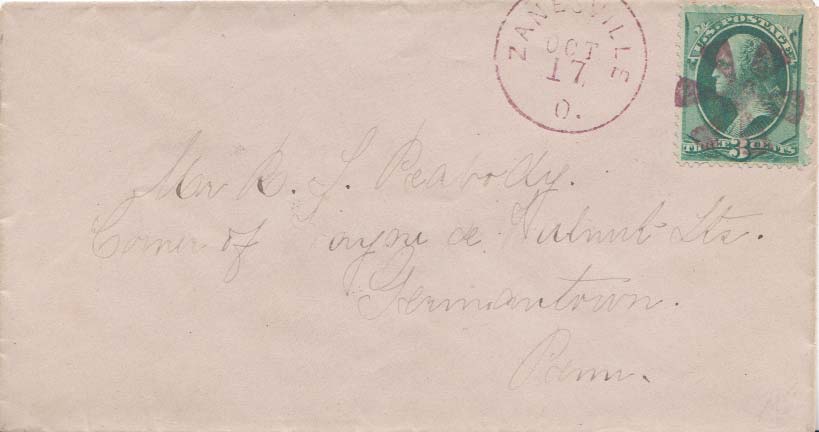 ZANESVILLE
OCT
17
O.
U.S. POSTAGE
THREE 3 CENTS
R. L. Peabody.
Corner of Wayne & Walnut Sts.
Germantown.
Penn.